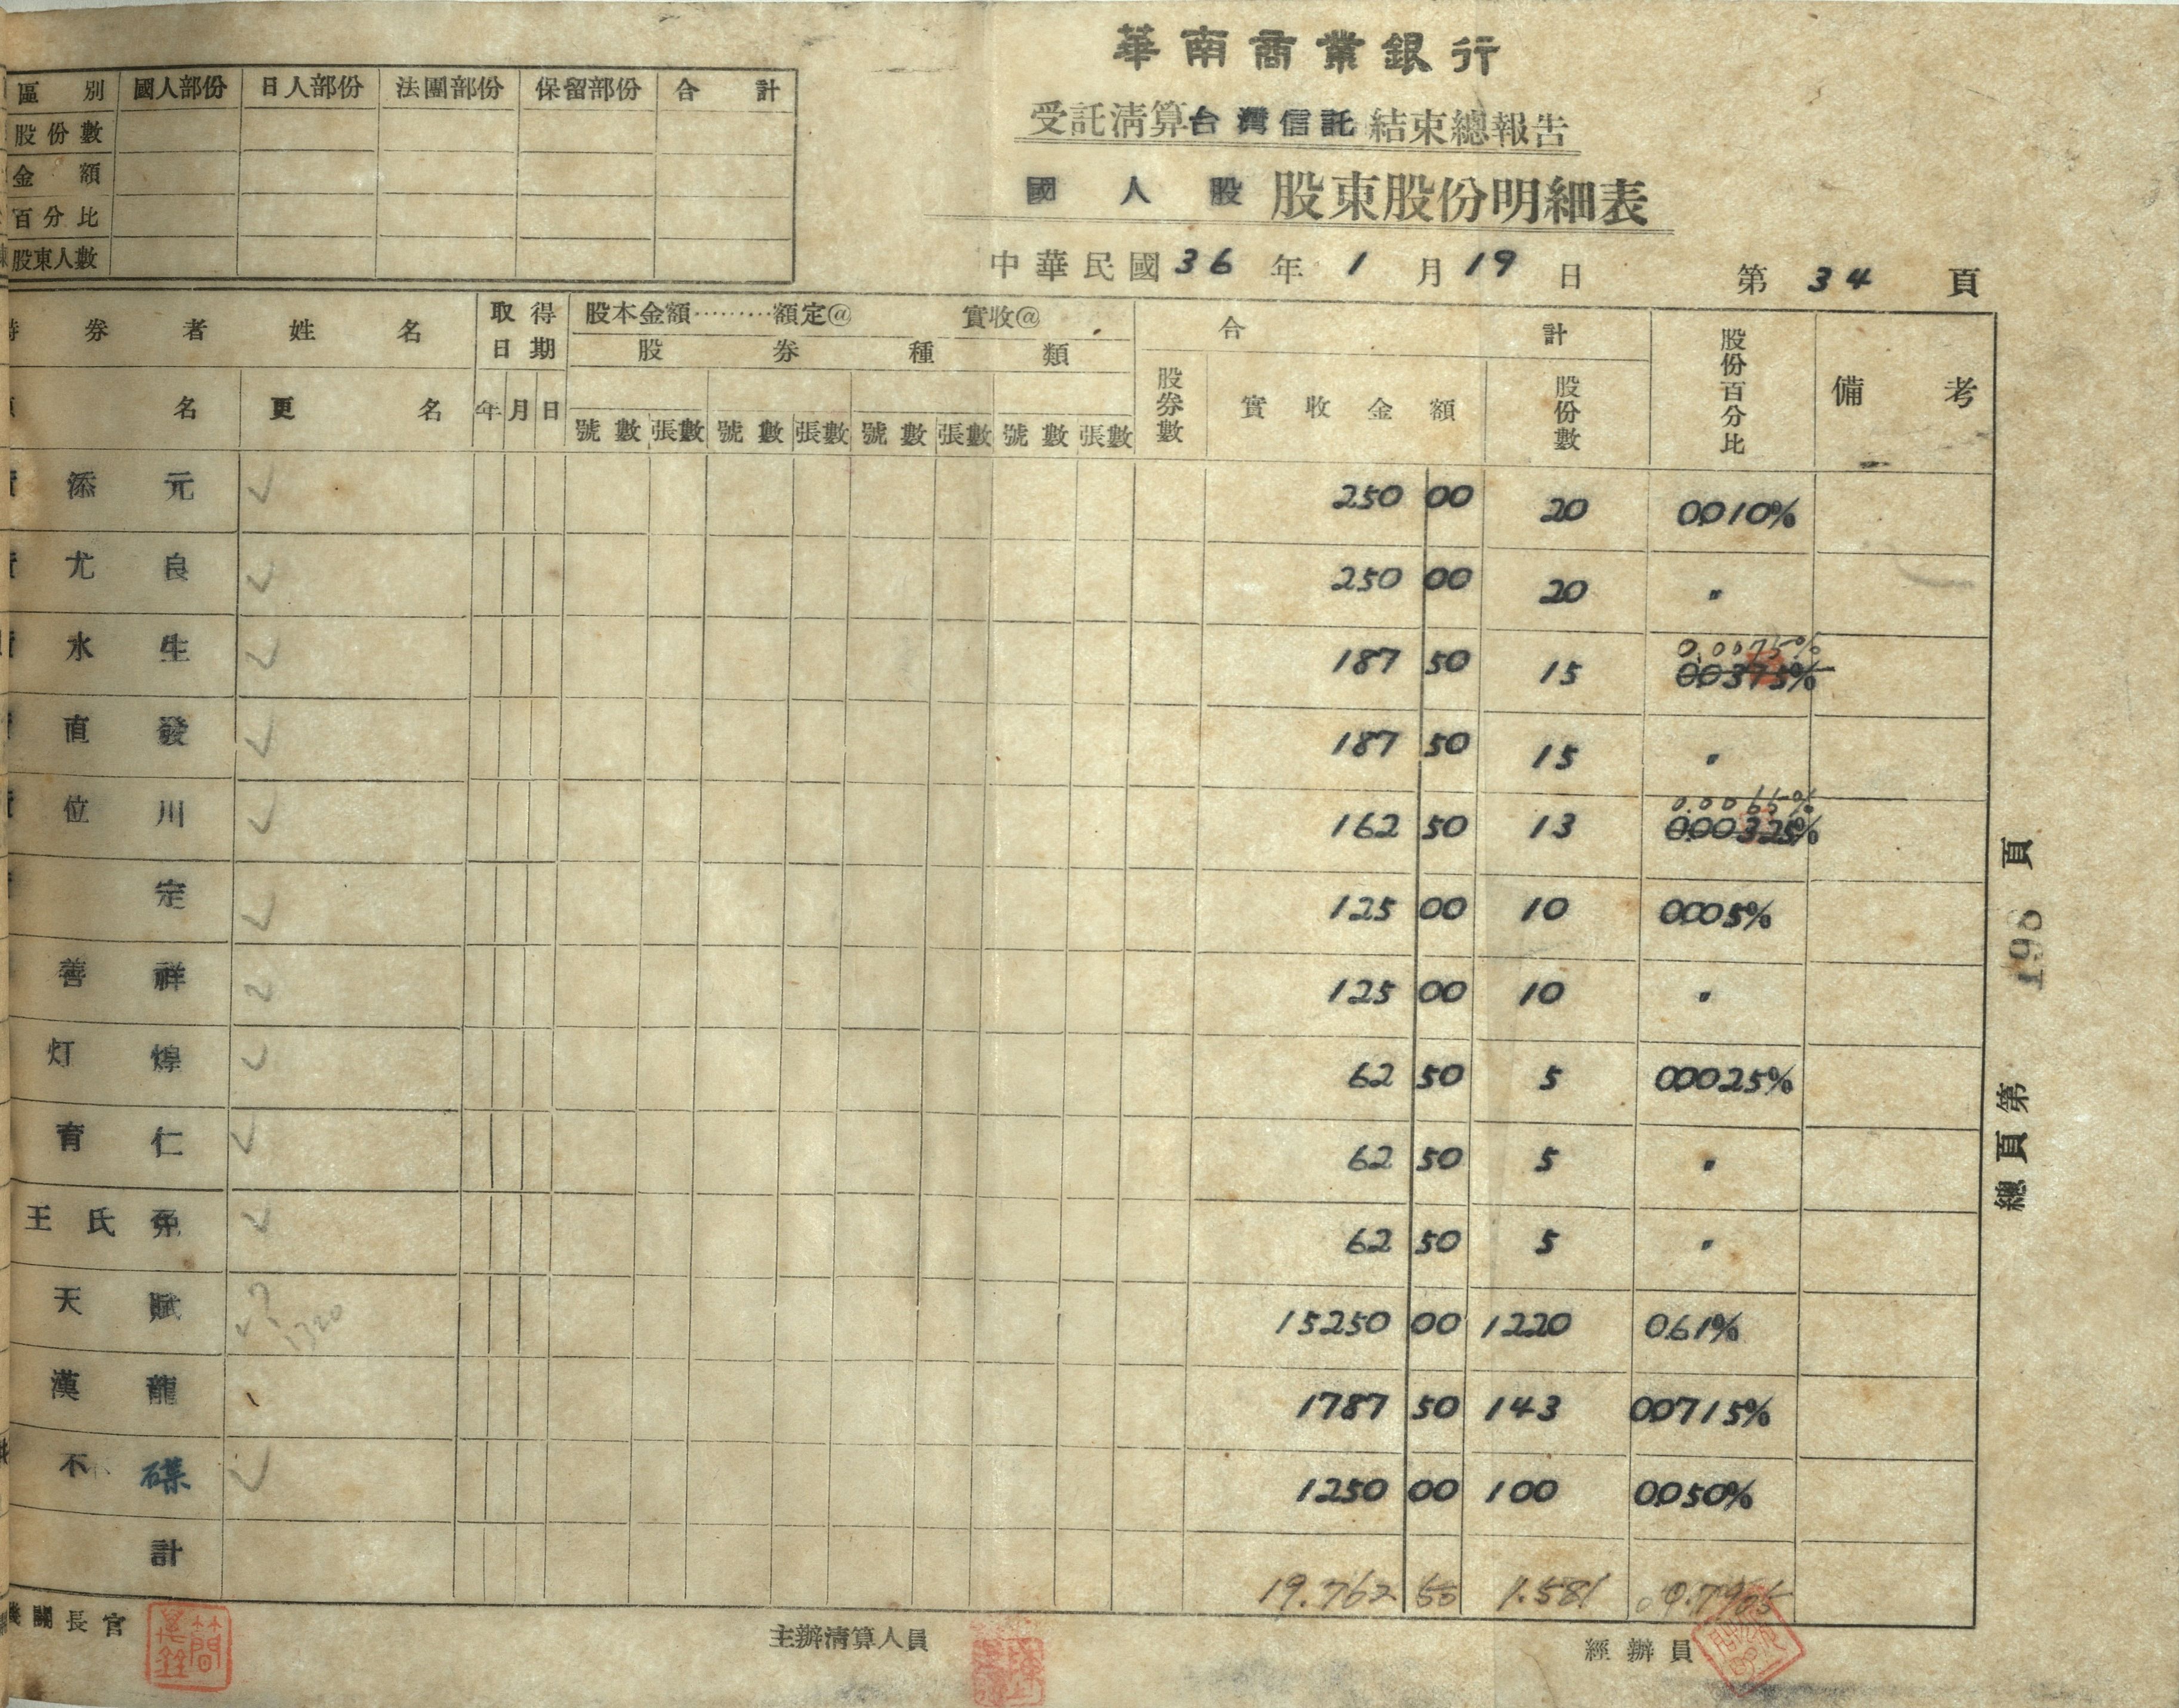 華南商業銀行
受託清算台灣信託結束總報告
國人股 股東股份明細表
中華民國36年1月19日 第34頁
區別 國人部份 日人部份 法團部份 保留部份 合計
股份數
金額
百分比
股東人數
券者姓名 取得日期 股本金額………額定@ 實收@ 合計 股份百分比 備考
股券種類
名 更名 年 月 日 號數 張數 號數 張數 號數 張數 號數 張數 股券數 實收金額 股份數
添元 250 00 20 0010%
尤良 250 00 20 〃
水生 187 50 15 0.0075% 00375%
直發 187 50 15 〃
位川 162 50 13 0.0065% 000325%
定 125 00 10 0005%
善祥 125 00 10 〃
灯煌 62 50 5 00025%
育仁 62 50 5 〃
王氏 62 50 5 〃
天賦 15250 00 1220 061%
漢龍 1787 50 143 00715%
不碟 1250 00 100 0050%
計 19.762 50 1.581 0.7905
關長官 主辦清算人員 經辦員
總頁第 196 頁